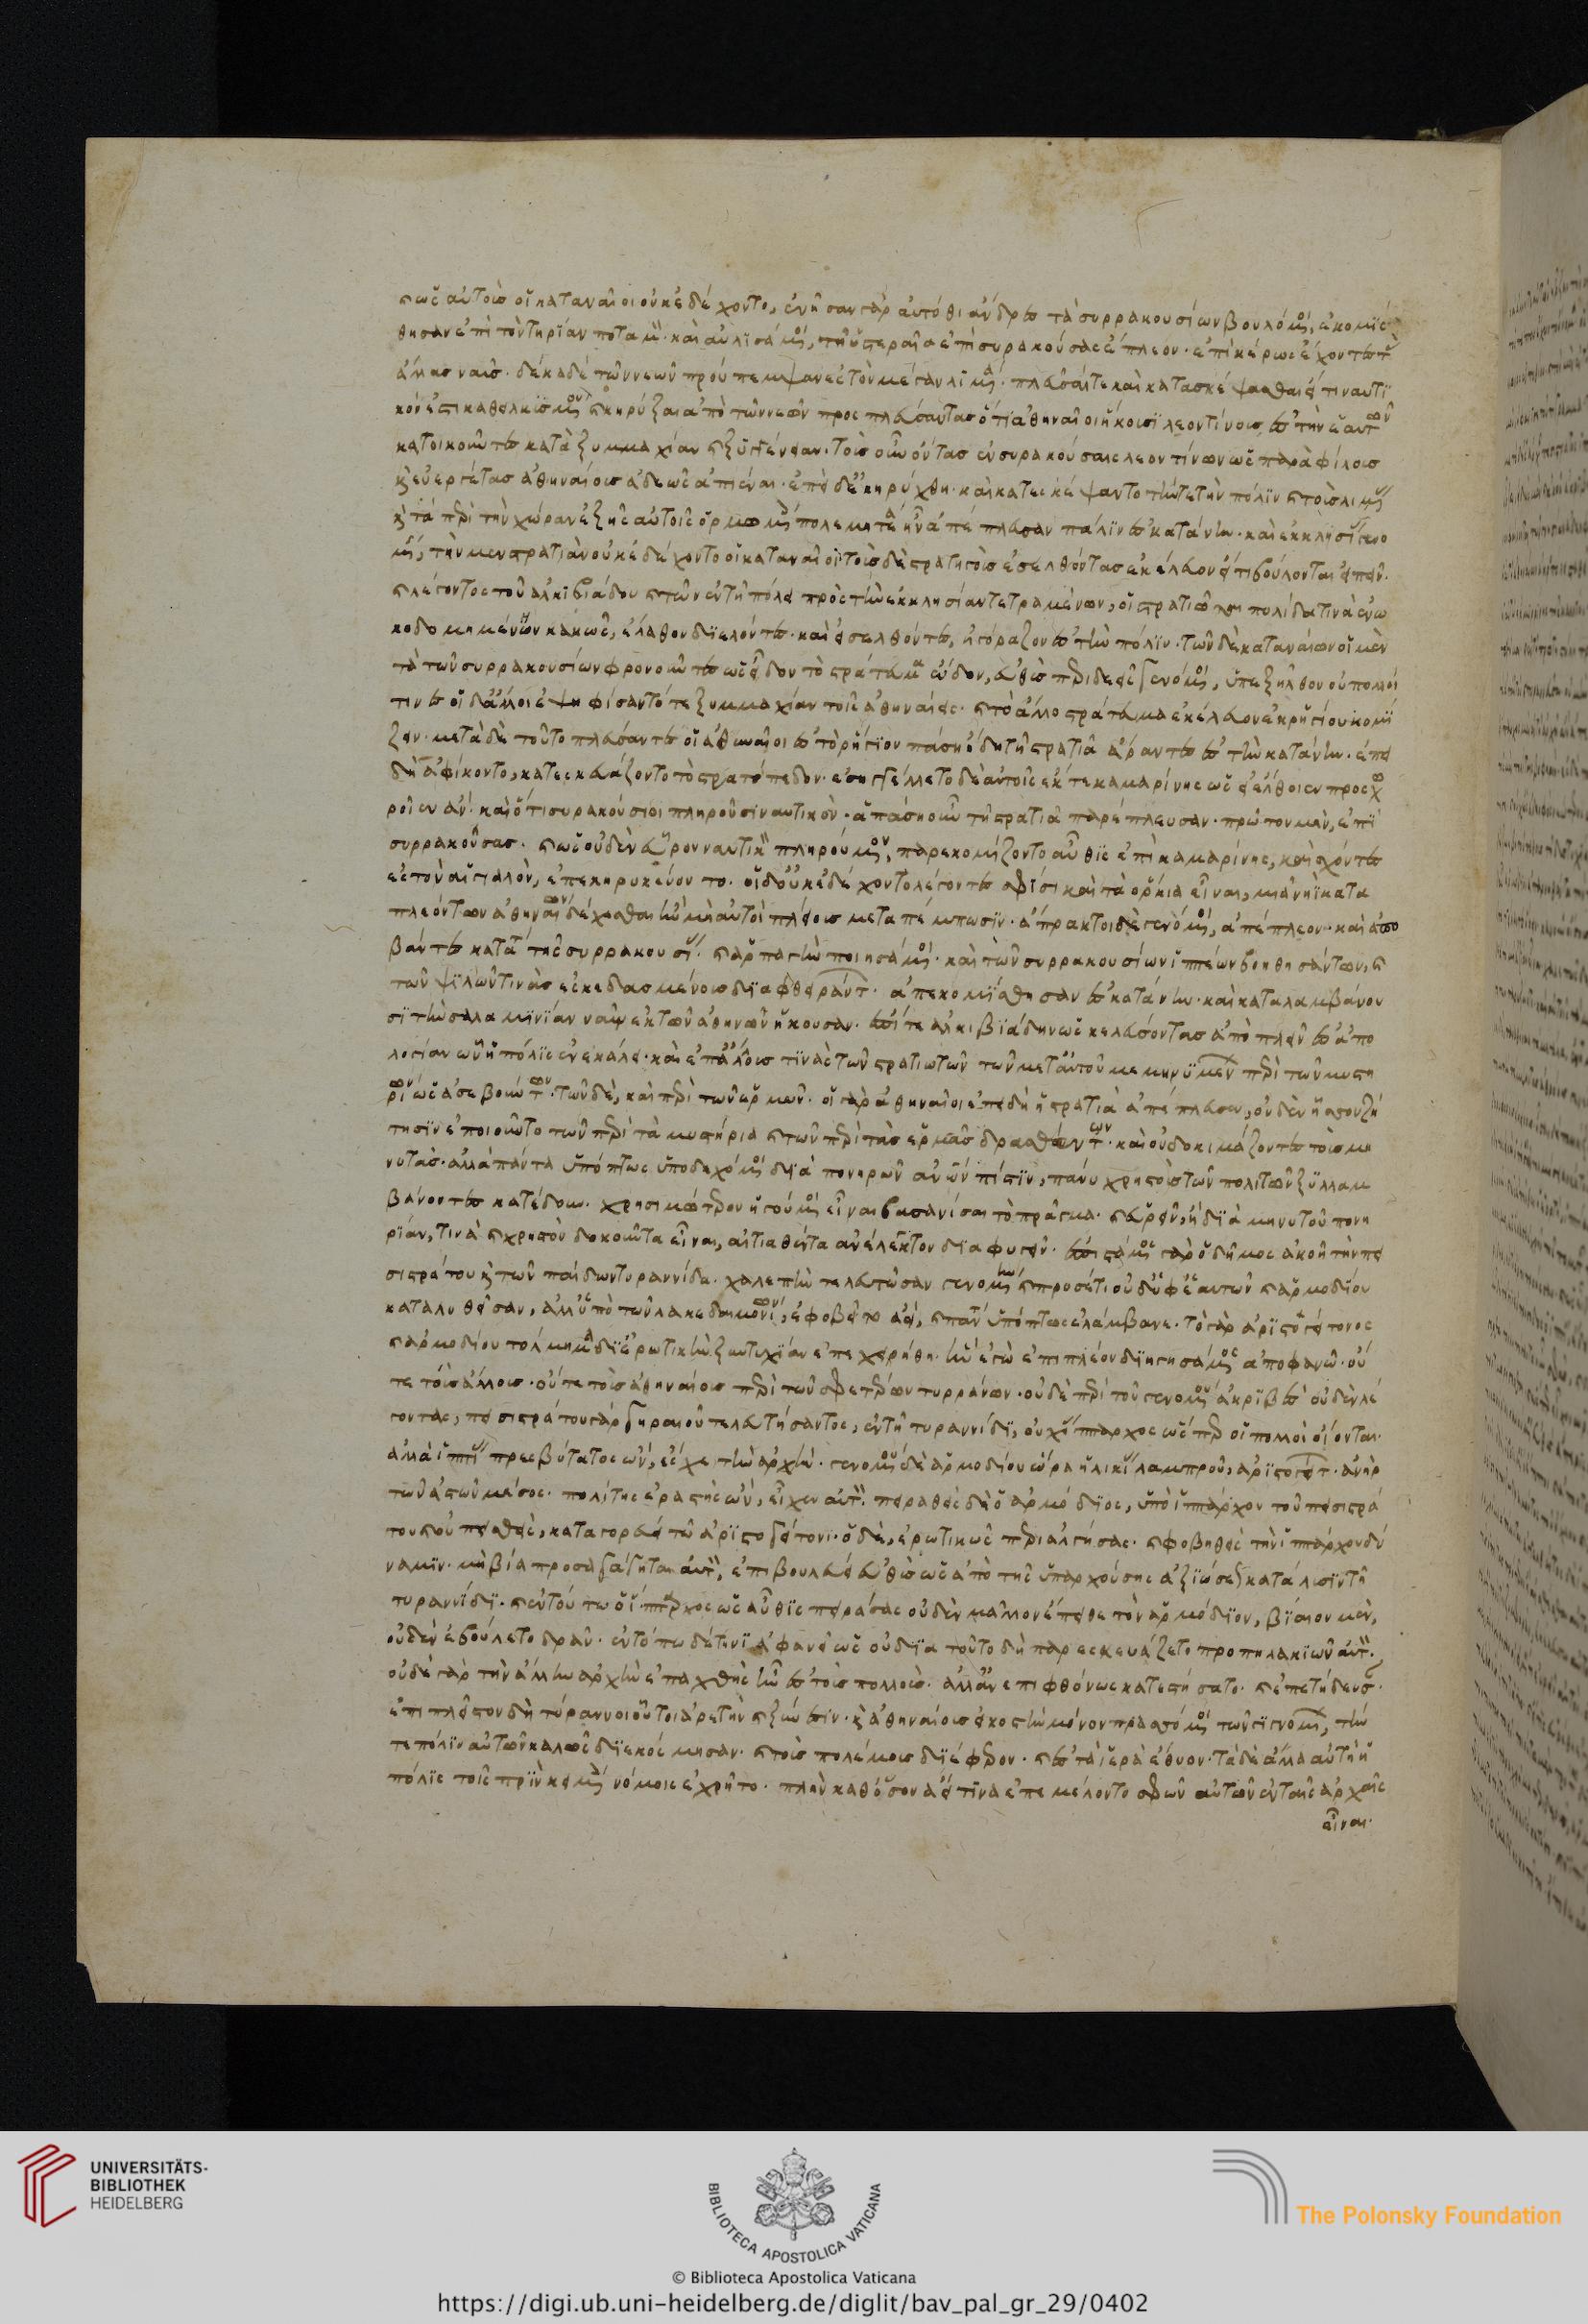 καὶ ὡς αὐτοὺς οἱ καταναῖοι οὐκ ἐδέχοντο, ἐνῆσαν γὰρ αὐτόθι ἄνδρες τὰ συρρακουσίων βουλόμενοι, ἐκομίσ
θησαν ἐπὶ τὸν τηρίαν ποταμόν· καὶ αὐλισάμενοι, τῇ ὑστεραίᾳ ἐπὶ συρακούσας ἔπλεον· ἐπὶ κέρως ἔχοντες τὰς
ἄλλας ναῦς· δέκα δὲ τῶν νεῶν προύπεμψαν ἐς τὸν μέγαν λιμένα· πλεῦσαί τε καὶ κατασκέψασθαι εἴ τι ναυτι
κόν ἐστι καθειλκυσμένον καὶ κηρύξαι ἀπὸ τῶν νεῶν προσπλεύσαντας ὅτι ἀθηναῖοι ἥκουσι λεοντίνους ἐς τὴν ἑαυτῶν
κατοικοιοῦντες κατὰ ξυμμαχίαν καὶ ξυγγένειαν· τοὺς οὖν ὄντας ἐν συρακούσαις λεοντίνων ὡς παρὰ φίλους
καὶ εὐεργέτας ἀθηναίους ἀδεῶς ἀπιέναι· ἐπεὶ δ' ἐκηρύχθη· καὶ κατεσκέψαντο τήν τε τὴν πόλιν καὶ τοὺς λιμένας
καὶ τὰ περὶ τὴν χώραν ἐξ ἧς αὐτοῖς ὁρμωμένοις πολεμητέα ἦν ἀπέπλευσαν πάλιν ἐς κατάνην· καὶ ἐκκλησίας γενο
μένης, τὴν μὲν στρατιὰν οὐκ ἐδέχοντο οἱ καταναῖοι· τοὺς δὲ στρατηγοὺς ἐσελθόντας ἐκέλευον εἴ τι βούλονται εἰπεῖν·
καὶ λέγοντος τοῦ ἀλκιβιάδου καὶ τῶν ἐν τῇ πόλει πρὸς τὴν ἐκκλησίαν τετραμένων, οἱ στρατιῶται πυλίδα τινὰ ἐνῳ
κοδομημένην κακῶς, ἔλαθον διελόντες· καὶ ἐσελθόντες, ἠγόραζον ἐς τὴν πόλιν· τῶν δὲ καταναίων οἱ μὲν
τὰ τῶν συρρακουσίων φρονοῦντες ὡς εἶδον τὸ στράτευμα ἔνδον, εὐθὺς περιδεεῖς γενόμενοι, ὑπεξῆλθον οὐ πολλοί
τινες οἱ δ' ἄλλοι ἐψηφίσαντό τε ξυμμαχίαν τοῖς ἀθηναίοις· καὶ τὸ ἄλλο στράτευμα ἐκέλευον ἐκ ῥηγίου κομί
ζειν· μετὰ δὲ τοῦτο πλεύσαντες οἱ ἀθηναῖοι ἐς τὸ ῥήγιον πάσῃ ἤδη τῇ στρατιᾷ ἄραντες ἐς τὴν κατάνην· ἐπει
δὴ ἀφίκοντο, κατεσκευάζοντο τὸ στρατόπεδον· ἐσηγγέλλετο δὲ αὐτοῖς ἔκ τε καμαρίνης ὡς εἰ ἔλθοιεν προσχω
ροῖεν ἄν· καὶ ὅτι συρακούσιοι πληροῦσι ναυτικόν· ἁπάσῃ οὖν τῇ στρατιᾷ παρέπλευσαν· πρῶτον μὲν, ἐπὶ
συρρακούσας· καὶ ὡς οὐδὲν εὗρον ναυτικὸν πληρούμενον, παρεκομίζοντο αὖθις ἐπὶ καμαρίνης, καὶ σχόντες
ἐς τὸν αἰγιαλὸν, ἐπεκηρυκεύοντο· οἱ δ' οὐκ ἐδέχοντο λέγοντες σφίσι καὶ τὰ ὅρκια εἶναι, μιᾷ νηῒ κατα
πλεόντων ἀθηναίων δέχεσθαι ἢν μὴ αὐτοὶ πλείους μεταπέμπωσιν· ἄπρακτοι δὲ γενόμενοι, ἀπέπλεον· καὶ ἀπο
βάντες κατά τι τῆς συρρακουσίας· καὶ ἁρπαγὴν ποιησάμενοι· καὶ τῶν συρρακουσίων ἱππέων βοηθησάντων, καὶ
τῶν ψιλῶν τινὰς ἐσκεδασμένους διαφθειράντων· ἀπεκομίσθησαν ἐς κατάνην· καὶ καταλαμβάνου
σι τὴν σαλαμινίαν ναῦν ἐκ τῶν ἀθηνῶν ἥκουσαν· ἐπί τε ἀλκιβιάδην ὡς κελεύσοντας ἀποπλεῖν ἐς ἀπο
λογίαν ὧν ἡ πόλις ἐνεκάλει· καὶ ἐπ' ἄλλους τινὰς τῶν στρατιωτῶν τῶν μετ' αὐτοῦ μεμηνυμένων περὶ τῶν μυστη
ρίων ὡς ἀσεβούντων· τῶν δὲ, καὶ περὶ τῶν ἑρμῶν· οἱ γὰρ ἀθηναῖοι ἐπειδὴ ἡ στρατιὰ ἀπέπλευσεν, οὐδὲν ἧσσον ζή
τησιν ἐποιοῦντο τῶν περὶ τὰ μυστήρια καὶ τῶν περὶ τὰς ἑρμᾶς δρασθέντων· καὶ οὐ δοκιμάζοντες τοὺς μη
νυτὰς· ἀλλὰ πάντα ὑπόπτως ὑποδεχόμενοι διὰ πονηρῶν ἀνθρώπων πίστιν, πάνυ χρηστοὺς τῶν πολιτῶν ξυλλαμ
βάνοντες κατέδουν· χρησιμώτερον ἡγούμενοι εἶναι βασανίσαι τὸ πρᾶγμα· καὶ εὑρεῖν, ἢ διὰ μηνυτοῦ πονη
ρίαν, τινὰ καὶ χρηστὸν δοκοῦντα εἶναι, αἰτιαθέντα ἀνέλεγκτον διαφυγεῖν· ἐπιστάμενος γὰρ ὁ δῆμος ἀκοῇ τὴν πει
σιστράτου καὶ τῶν παίδων τυραννίδα· χαλεπὴν τελευτῶσαν γενομένην καὶ προσέτι οὐδ' ὑφ' ἑαυτῶν καὶ ἁρμοδίου
καταλυθεῖσαν, ἀλλ' ὑπὸ τῶν λακεδαιμονίων, ἐφοβεῖτο ἀεί, καὶ πάντα ὑπόπτως ἐλάμβανε· τὸ γὰρ ἀριστογείτονος
καὶ ἁρμοδίου τόλμημα δι' ἐρωτικὴν ξυντυχίαν ἐπεχειρήθη· ἣν ἐγὼ ἐπιπλέον διηγησάμενος ἀποφανῶ· οὔ
τε τοὺς ἄλλους· οὔτε τοὺς ἀθηναίους περὶ τῶν σφετέρων τυρράννων· οὐδὲ περὶ τοῦ γενομένου ἀκριβὲς οὐδὲν λέ
γοντας, πεισιστράτου γὰρ γηραιοῦ τελευτήσαντος, ἐν τῇ τυραννίδι, οὐχ ἵππαρχος ὥσπερ οἱ πολλοὶ οἴονται·
ἀλλὰ ἱππίας πρεσβύτατος ὢν, ἔσχε τὴν ἀρχήν· γενομένου δὲ ἁρμοδίου ὥρᾳ ἡλικίας λαμπροῦ, ἀριστογείτων· ἀνὴρ
τῶν ἀστῶν μέσος· πολίτης ἐραστὴς ὢν, εἶχεν αὐτόν· πειραθεὶς δὲ ὁ ἁρμόδιος, ὑπὸ ἱππάρχου τοῦ πεισιστρά
του καὶ οὐ πεισθεὶς, καταγορεύει τῷ ἀριστογείτονι· ὁ δὲ, ἐρωτικῶς περιαλγήσας· καὶ φοβηθεὶς τὴν ἱππάρχου δύ
ναμιν· μὴ βίᾳ προσαγάγηται αὐτόν, ἐπιβουλεύει εὐθὺς ὡς ἀπὸ τῆς ὑπαρχούσης ἀξιώσεως κατάλυσιν τῇ
τυραννίδι· καὶ ἐν τούτῳ ὁ ἵππαρχος ὡς αὖθις πειράσας οὐδὲν μᾶλλον ἔπειθε τὸν ἁρμόδιον, βίαιον μὲν,
οὐδὲν ἐβούλετο δρᾶν· ἐν τόπῳ δέ τινι ἀφανεῖ ὡς οὐ διὰ τοῦτο δὴ παρεσκευάζετο προπηλακιῶν αὐτόν·
οὐδὲ γὰρ τὴν ἄλλην ἀρχὴν ἐπαχθὴς ἦν ἐς τοὺς πολλούς· ἀλλ' ἀνεπιφθόνως κατεστήσατο· καὶ ἐπετήδευσαν·
ἐπὶ πλεῖστον δὴ τύραννοι οὗτοι ἀρετὴν καὶ ξύνεσιν· καὶ ἀθηναίους εἰκοστὴν μόνον πρασσόμενοι τῶν γιγνομένων, τήν
τε πόλιν αὐτῶν καλῶς διεκόσμησαν· καὶ τοὺς πολέμους διέφερον· καὶ ἐς τὰ ἱερὰ ἔθυον· τὰ δὲ ἄλλα αὐτὴ ἡ
πόλις τοῖς πρὶν κειμένοις νόμοις ἐχρῆτο· πλὴν καθόσον ἀεί τινα ἐπεμέλοντο σφῶν αὐτῶν ἐν ταῖς ἀρχαῖς
εἶναι·
UNIVERSITÄTS-
BIBLIOTHEK
HEIDELBERG
BIBLIOTECA APOSTOLICA VATICANA
The Polonsky Foundation
© Biblioteca Apostolica Vaticana
https://digi.ub.uni-heidelberg.de/diglit/bav_pal_gr_29/0402